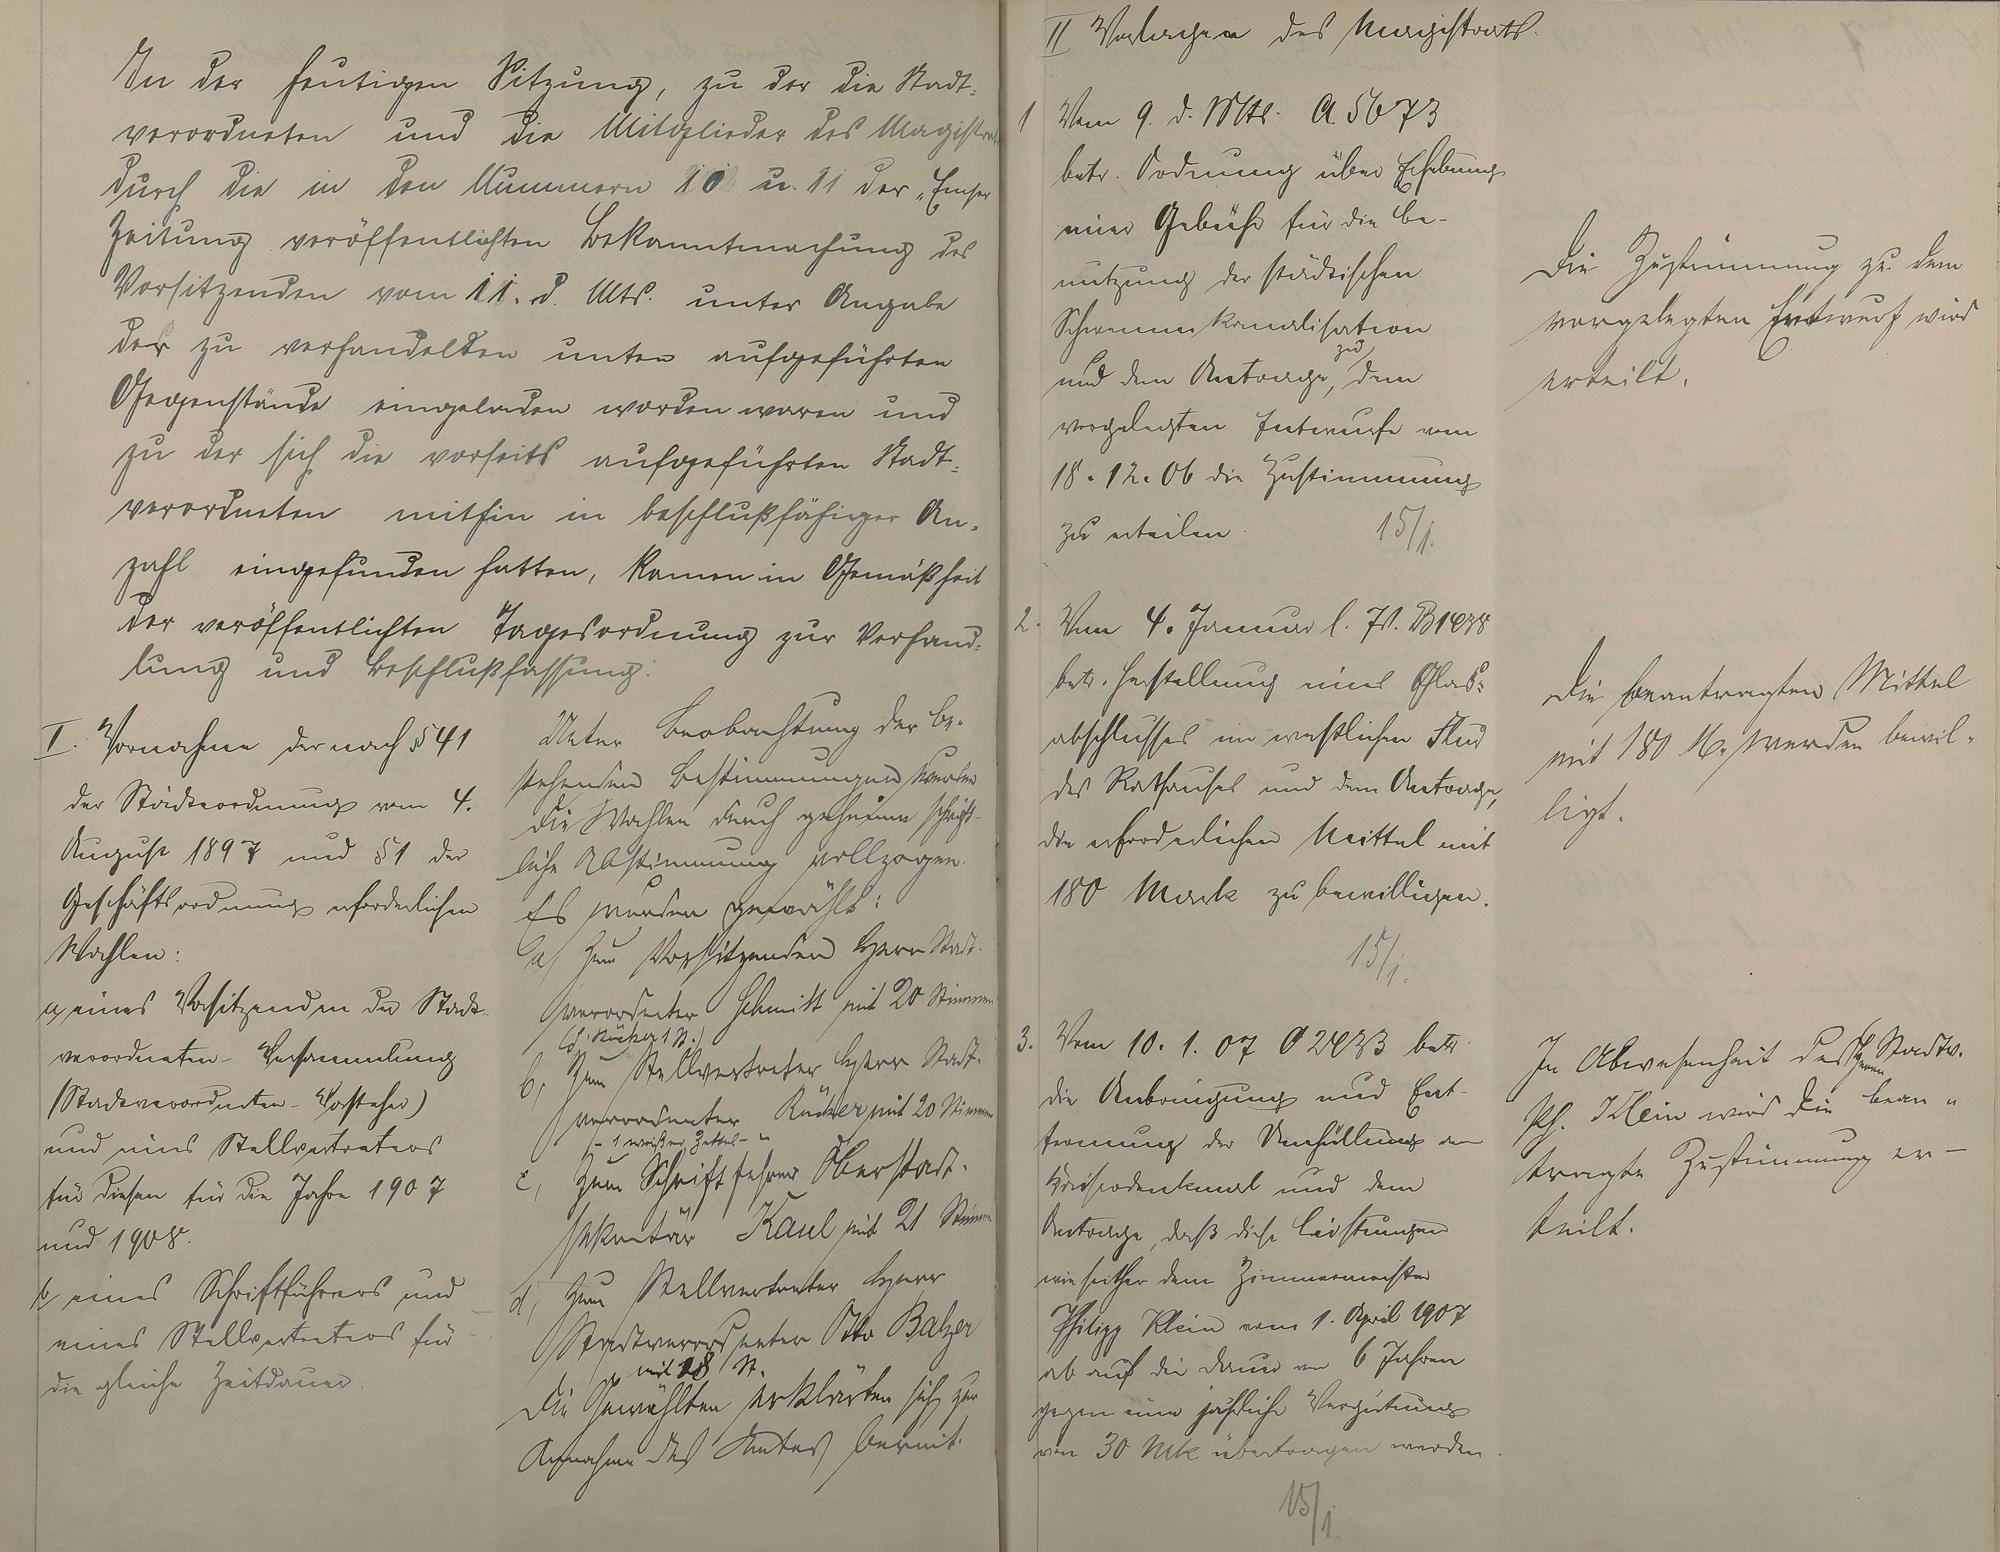 In der heutigen Sitzung, zu der die Stadt-
verordneten und die Mitglieder des Magistrats
durch die in den Nummern 10 u. 11 der „Emser
Zeitung veröffentlichten Bekanntmachung des
Vorsitzenden vom 11. d. Mts. unter Angabe
der zu verhandelten unten aufgeführten
Gegenstände eingeladen worden waren und
zu der sich die vorseits aufgeführten Stadt-
verordneten mithin in beschlußfähiger An-
zahl eingefunden hatten, kamen in Gemäßheit
der veröffentlichten Tagesordnung zur Verhand-
lung und Beschlußfassung:
I. Vornahme der nach §41
der Städteordnung vom 4.
August 1897 und §1 der
Geschäftsordnung erforderlichen
Wahlen:
a, eines Vorsitzenden der Stadt-
verordneten-Versammlung
(Stadtverordneten-Vorsteher)
und eines Stellvertreters
für diesen für die Jahre 1907
und 1908.
b, eines Schriftführers und
eines Stellvertreters für
die gleiche Zeitdauer.
Unter Beobachtung der be-
stehenden Bestimmungen wurden
die Wahlen durch geheime schrift-
liche Abstimmung vollzogen.
Es wurden gewählt:
a, zum Vorsitzenden Herr Stadt-
verordneter Schmitt mit 20 Stimmen
(H. Rücker 1 St.)
b, zum Stellvertreter Herr Stadt-
verordneter Rücker mit 20 Stimmen
- 1 weißer Zettel -
c, zum Schriftführer Oberstadt-
sekretär Kaul mit 21 Stimmen
d, zum Stellvertreter Herr
Stadtverordneter Otto Balzer
mit 18 St.
Die Gewählten erklärten sich zur
Annahme des Amtes bereit.
II Vorlagen des Magistrats.
1 Vom 9. d. Mts. A. 5673
betr. Ordnung über Erhebung
einer Gebühr für die Be-
nutzung der städtischen
Schwemmkanalisation
und dem Antrage, dem
vorgelegten Entwurfe vom
18.12.06 die Zustimmung
zu erteilen.
15/1.
Die Zustimmung zu dem
vorgelegten Entwurf wird
erteilt.
2. Vom 4. Januar l. Js. B 1438
betr. Herstellung eines Glas-
abschlusses im westlichen Flur
des Rathauses und dem Antrage,
die erforderlichen Mittel mit
180 Mark zu bewilligen.
15/1.
Die beantragten Mittel
mit 180 M. werden bewil-
ligt.
3. Vom 10.1.07 betr.
die Anbringung und Ent-
fernung der Umhüllung am
Kriegerdenkmal und dem
Antrage, daß diese Leistungen
wie seither dem Zimmermeister
Philipp Klein vom 1. April 1907
ab auf die Dauer von 6 Jahren
gegen eine jährliche Vergütung
von 30 Mk übertragen werden.
15/1.
In Abwesenheit des Herrn Stadtv.
Ph. Klein wird die bean-
tragte Zustimmung er-
teilt.